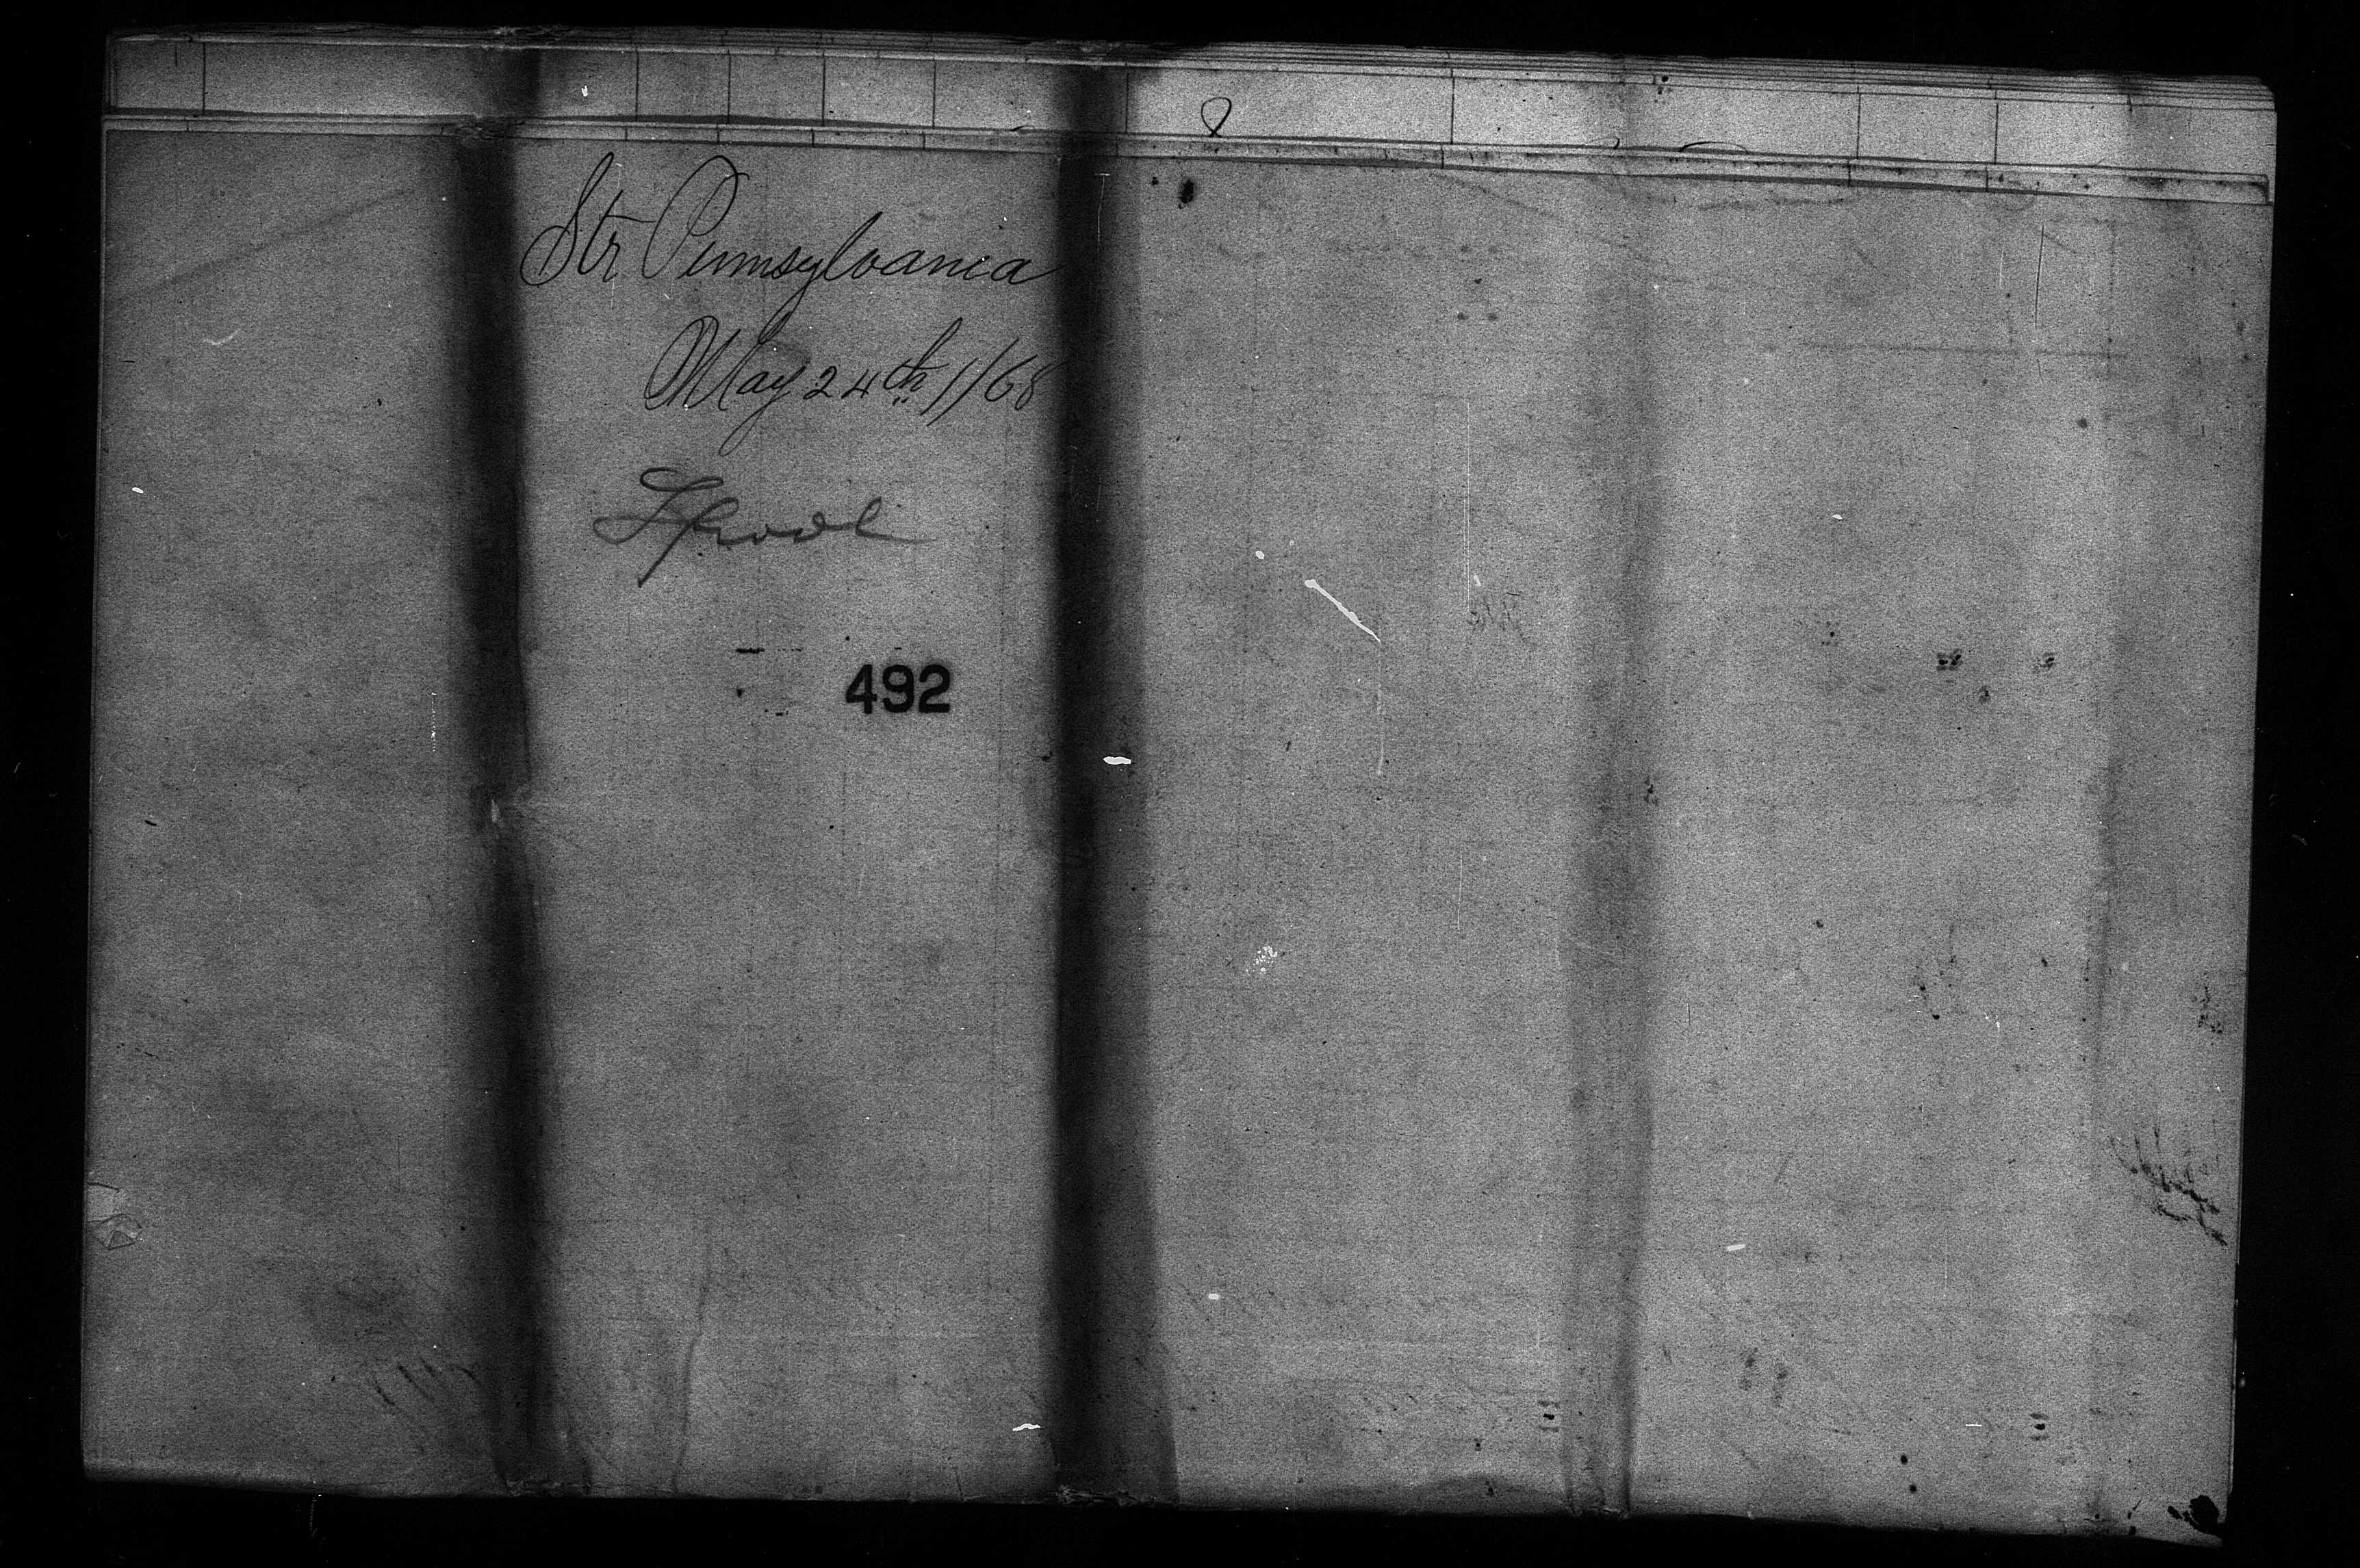 Str Pennsylvania
May 24th 1/68
492